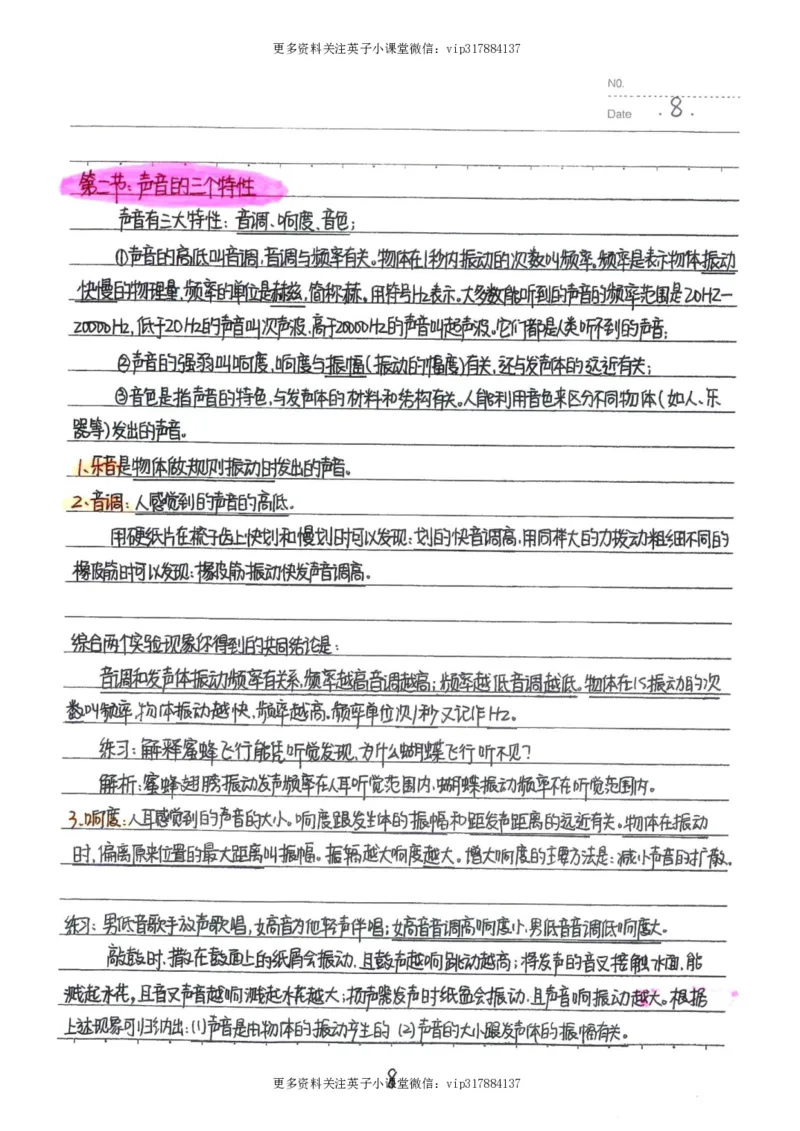 更多资料关注英子小课堂微信：vip317884137
NO.
Date .8.
第二节：声音的三个特性
声音有三大特性：音调、响度、音色；
①声音的高低叫音调，音调与频率有关。物体在1秒内振动的次数叫频率。频率是表示物体振动
快慢的物理量，频率的单位是赫兹，简称赫。用符号Hz表示。大多数能听到的声音的频率范围是20HZ—
20000Hz，低于20Hz的声音叫次声波，高于20000Hz的声音叫超声波。它们都是人类听不到的声音；
②声音的强弱叫响度，响度与振幅（振动的幅度）有关，还与发声体的远近有关；
③音色是指声音的特色，与发声体的材料和结构有关。人能利用音色来区分不同物体（如人、乐
器等）发出的声音。
1、乐音是物体做规则振动时发出的声音。
2、音调：人感觉到的声音的高低。
用硬纸片在梳子齿上快划和慢划时可以发现：划的快音调高，用同样大的力拨动粗细不同的
橡皮筋时可以发现：橡皮筋振动快发声音调高。
综合两个实验现象你得到的共同结论是：
音调和发声体振动频率有关系，频率越高音调越高；频率越低音调越低。物体在1S振动的次
数叫频率，物体振动越快，频率越高。频率单位次/秒又记作Hz。
练习：解释蜜蜂飞行能凭听觉发现，为什么蝴蝶飞行听不见？
解析：蜜蜂翅膀振动发声频率在人耳听觉范围内，蝴蝶振动频率不在听觉范围内。
3、响度：人耳感觉到的声音的大小。响度跟发生体的振幅和距发声距离的远近有关。物体在振动
时，偏离原来位置的最大距离叫振幅。振幅越大响度越大。增大响度的主要方法是：减小声音的扩散。
练习：男低音歌手放声歌唱，女高音为他轻声伴唱；女高音音调高响度小，男低音音调低响度大。
敲鼓时，撒在鼓面上的纸屑会振动，且鼓声越响跳动越高；将发声的音叉接触水面，能
溅起水花，且音叉声音越响溅起水花越大；扬声器发声时纸盆会振动，且声音响振动越大。根据
上述现象可归纳出：(1)声音是由物体的振动产生的 (2)声音的大小跟发声体的振幅有关。
8
更多资料关注英子小课堂微信：vip317884137